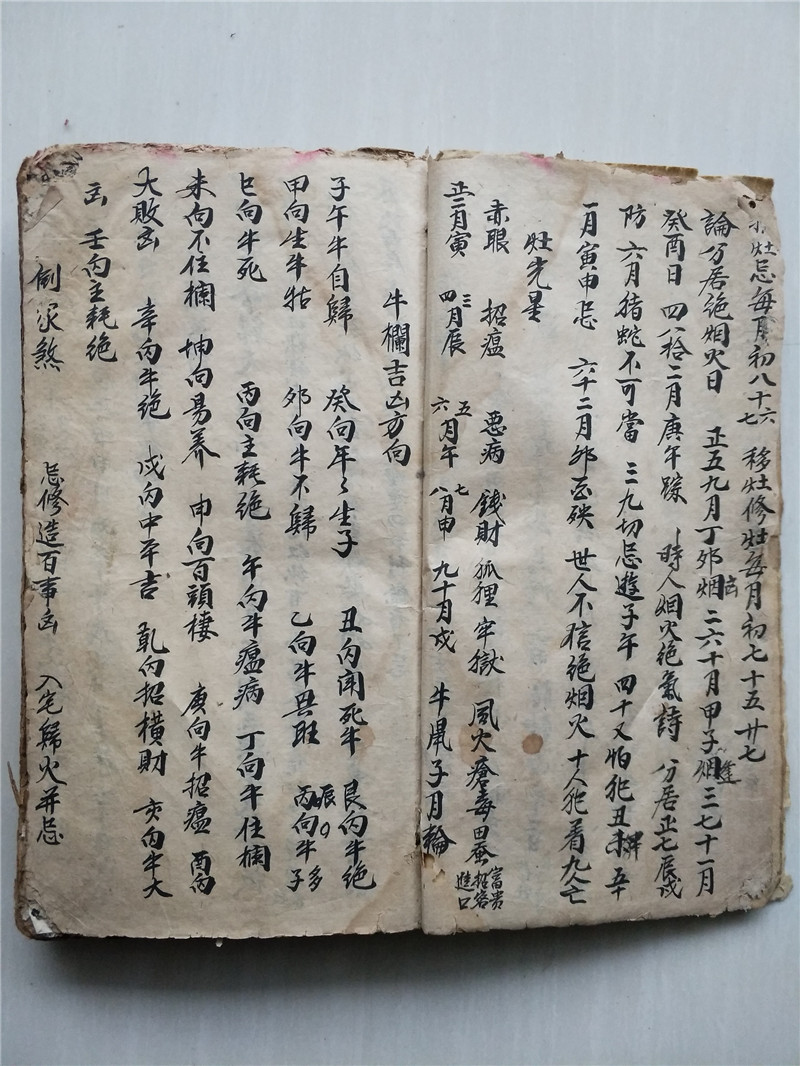 灶忌每月初八十六 十七 移灶修灶每月初七十五廿七
論分居绝烟火日 正五九月丁夘烟 二六十月甲子烟 三七十一月
癸酉日 四八拾二月庚午 時人烟火绝氣詩 分居正七辰戌
防 六月猪蛇不可當 三九切忌遊子午 四十又怕犯丑未 五十
一月寅申忌 六十二月夘酉殃 世人不信绝烟火 十人犯着九人亡
灶完星
赤眼 招瘟 惡病 錢財 狐狸 牢獄 風火 瘡毒 田蚕 富贵 招客 進口
正二月寅 三四月辰 五六月午 七八月申 九十月戌 牛鼠子月輪
牛欄吉凶方向
子午牛自歸 癸向年々生子 丑向閙死牛 艮向牛绝
甲向生牛牯 夘向牛不歸 乙向牛興旺 辰 丙向牛多子
巳向牛死 丙向主耗绝 午向牛瘟病 丁向牛住欄
未向不住欄 坤向易养 申向百頭棲 庚向牛招瘟 酉向
大敗凶 辛向牛绝 戍向中平吉 乹向招橫財 亥向牛大
凶 壬向主耗绝
倒家煞 忌修造百事凶 入宅歸火并忌